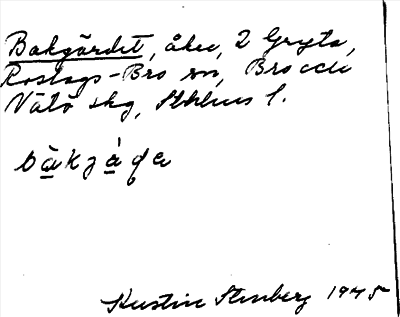 Bakgärdet, åker, 2 Gryta,
Roslags-Bro sn, Bro och
Vätö skg, Sthlms l.
Kerstin Stenberg 1945